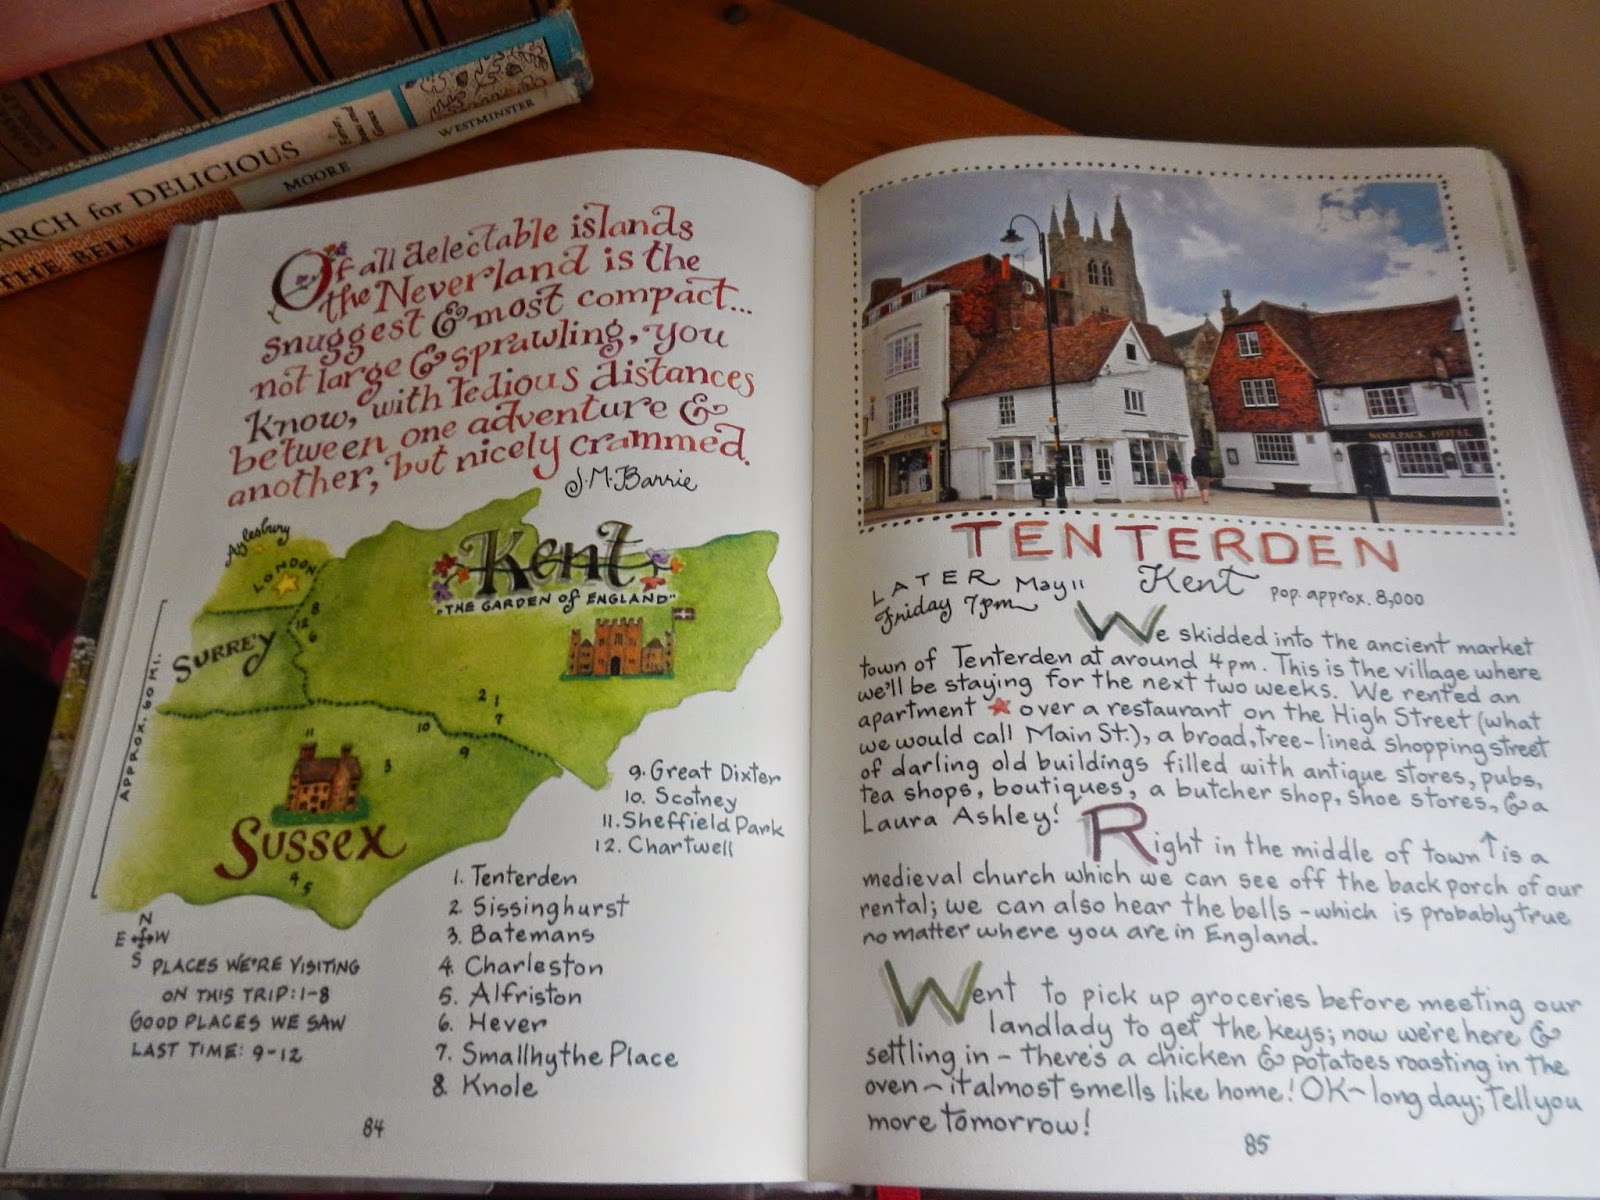 ARCH for DELICIOUS
THE BELL
MOORE
WESTMINSTER
Of all delectable islands
the Neverland is the
snuggest & most compact...
not large & sprawling, you
know, with tedious distances
between one adventure &
another, but nicely crammed.
J.M. Barrie
Aylesbury
LONDON
Kent
"THE GARDEN of ENGLAND"
8
12
6
SURREY
APPROX. 60 MI.
2 1
7
10
9
11
3
SUSSEX
4
5
9. Great Dixter
10. Scotney
11. Sheffield Park
12. Chartwell
1. Tenterden
2. Sissinghurst
3. Batemans
4. Charleston
5. Alfriston
6. Hever
7. Smallhythe Place
8. Knole
N
E W
S
PLACES WE'RE VISITING
ON THIS TRIP: 1-8
GOOD PLACES WE SAW
LAST TIME: 9-12
84
WOOLPACK HOTEL
TENTERDEN
LATER May 11 Kent pop. approx. 8,000
Friday 7pm
We skidded into the ancient market
town of Tenterden at around 4 pm. This is the village where
we'll be staying for the next two weeks. We rented an
apartment over a restaurant on the High Street (what
we would call Main St.), a broad, tree-lined shopping street
of darling old buildings filled with antique stores, pubs,
tea shops, boutiques, a butcher shop, shoe stores, & a
Laura Ashley!
Right in the middle of town ↑ is a
medieval church which we can see off the back porch of our
rental; we can also hear the bells - which is probably true
no matter where you are in England.
Went to pick up groceries before meeting our
landlady to get the keys; now we're here &
settling in - there's a chicken & potatoes roasting in the
oven ~ it almost smells like home! OK ~ long day; tell you
more tomorrow!
85